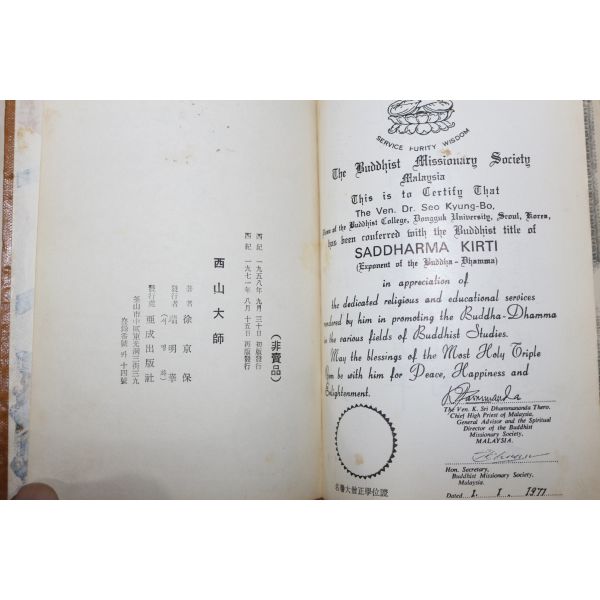 (非賣品)
西紀 一九五八年 九月 三十日 初版發行
西紀 一九七一年 八月 十五日 再版發行
西山大師
著者 徐京保
發行者 瑞明華
(서명화)
發行處 亜成出版社
釜山市中區東光洞三街三九
登錄番號 外十四號
SERVICE PURITY WISDOM
The Buddhist Missionary Society
Malaysia
This is to Certify That
The Ven. Dr. Seo Kyung-Bo,
of the Buddhist College, Dongguk University, Seoul, Korea,
has been conferred with the Buddhist title of
SADDHARMA KIRTI
(Exponent of the Buddha-Dhamma)
in appreciation of
the dedicated religious and educational services
rendered by him in promoting the Buddha-Dhamma
in the various fields of Buddhist Studies.
May the blessings of the Most Holy Triple
Gem be with him for Peace, Happiness and
Enlightenment.
The Ven. K. Sri Dhammananda Thero,
Chief High Priest of Malaysia,
General Advisor and the Spiritual
Director of the Buddhist
Missionary Society,
MALAYSIA.
Hon. Secretary,
Buddhist Missionary Society,
Malaysia.
Dated 1. 1. 1971
名譽大僧正學位證